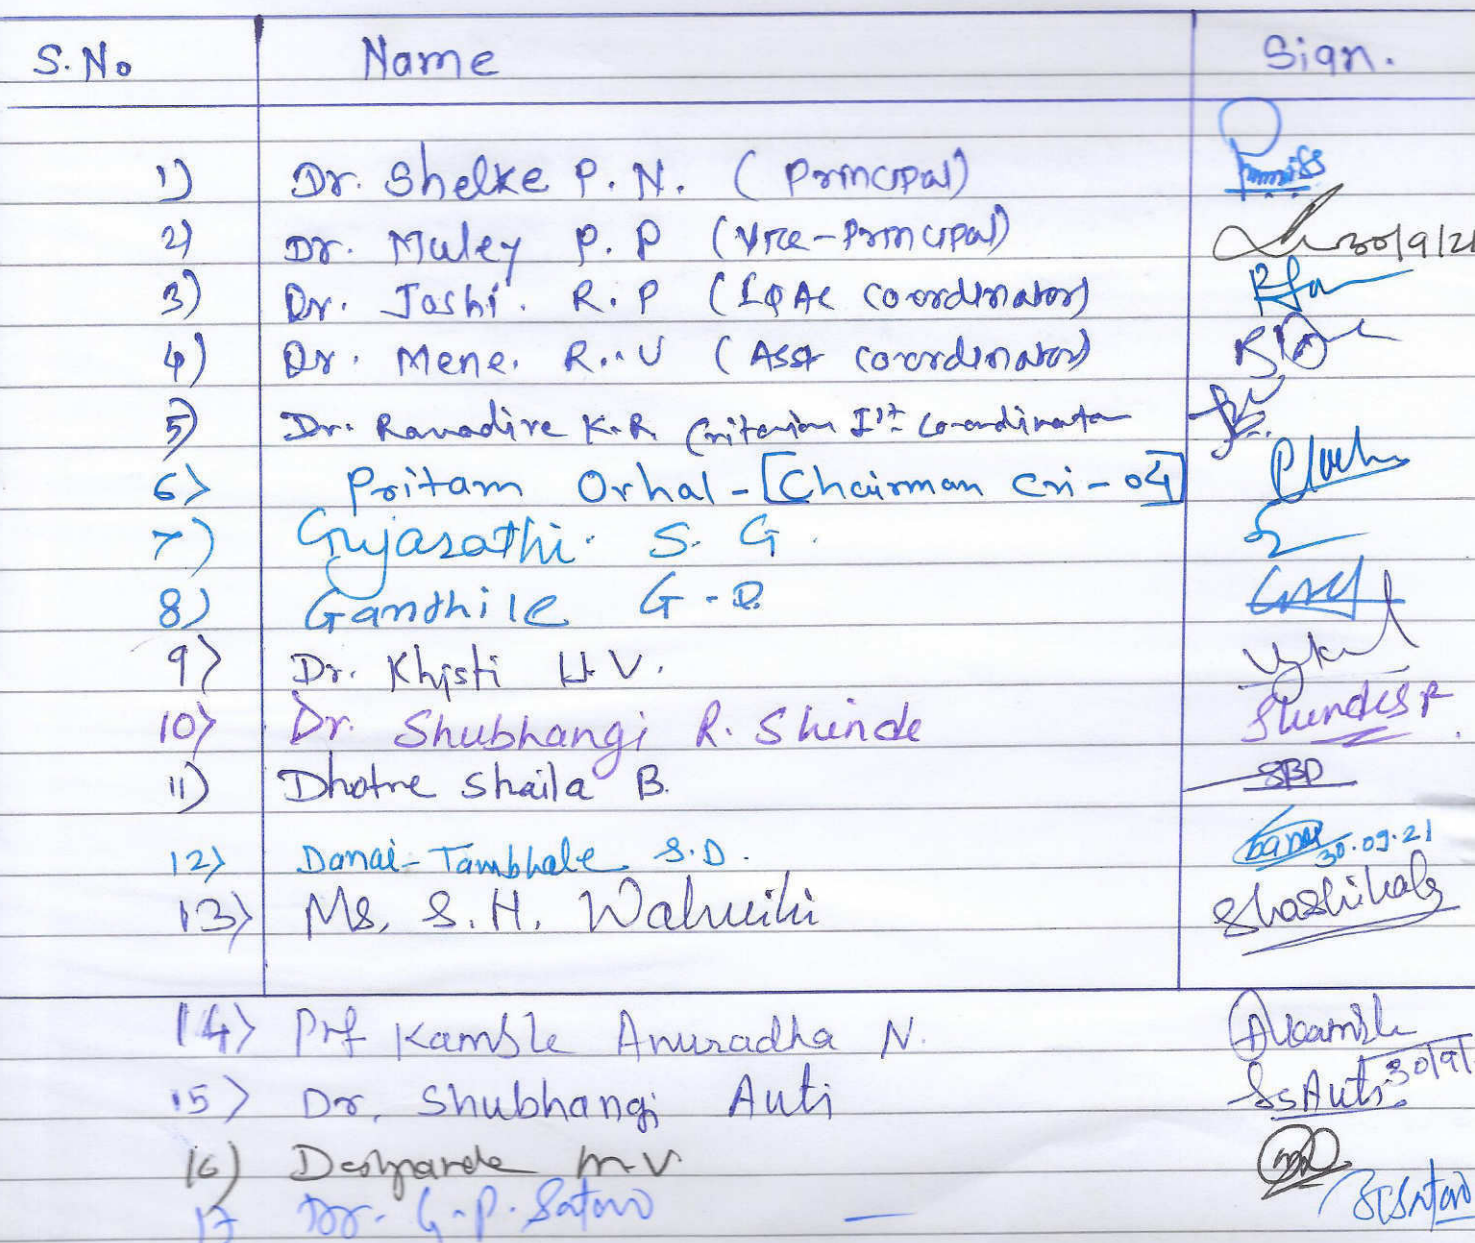 S.No Name Sign.
1) Dr. Shelke P.N. (Principal)
2) Dr. Muley P.P (Vice-Principal) 30/9/21
3) Dr. Joshi. R.P (IQAC Coordinator)
4) Dr. Mene. R.V (Asst coordinator)
5) Dr. Ranadive K.R. Criterion Ist Co-ordinator
6) Pritam Orhal-[Chairman Cri-04]
7) Gujarathi. S.G.
8) Gandhile G.D.
9) Dr. Khisti H.V.
10) Dr. Shubhangi R. Shinde ShindeSR
11) Dhotre Shaila B. SBD
12) Danai-Tambhale S.D. 30.09.21
13) Ms. S.H. Shashikala
14) Prf Kamble Anuradha N. AKamble
15) Dr. Shubhangi Auti SsAuti 30/9/
16) Deshpande M.V.
17 Dr. G.P. Satav —